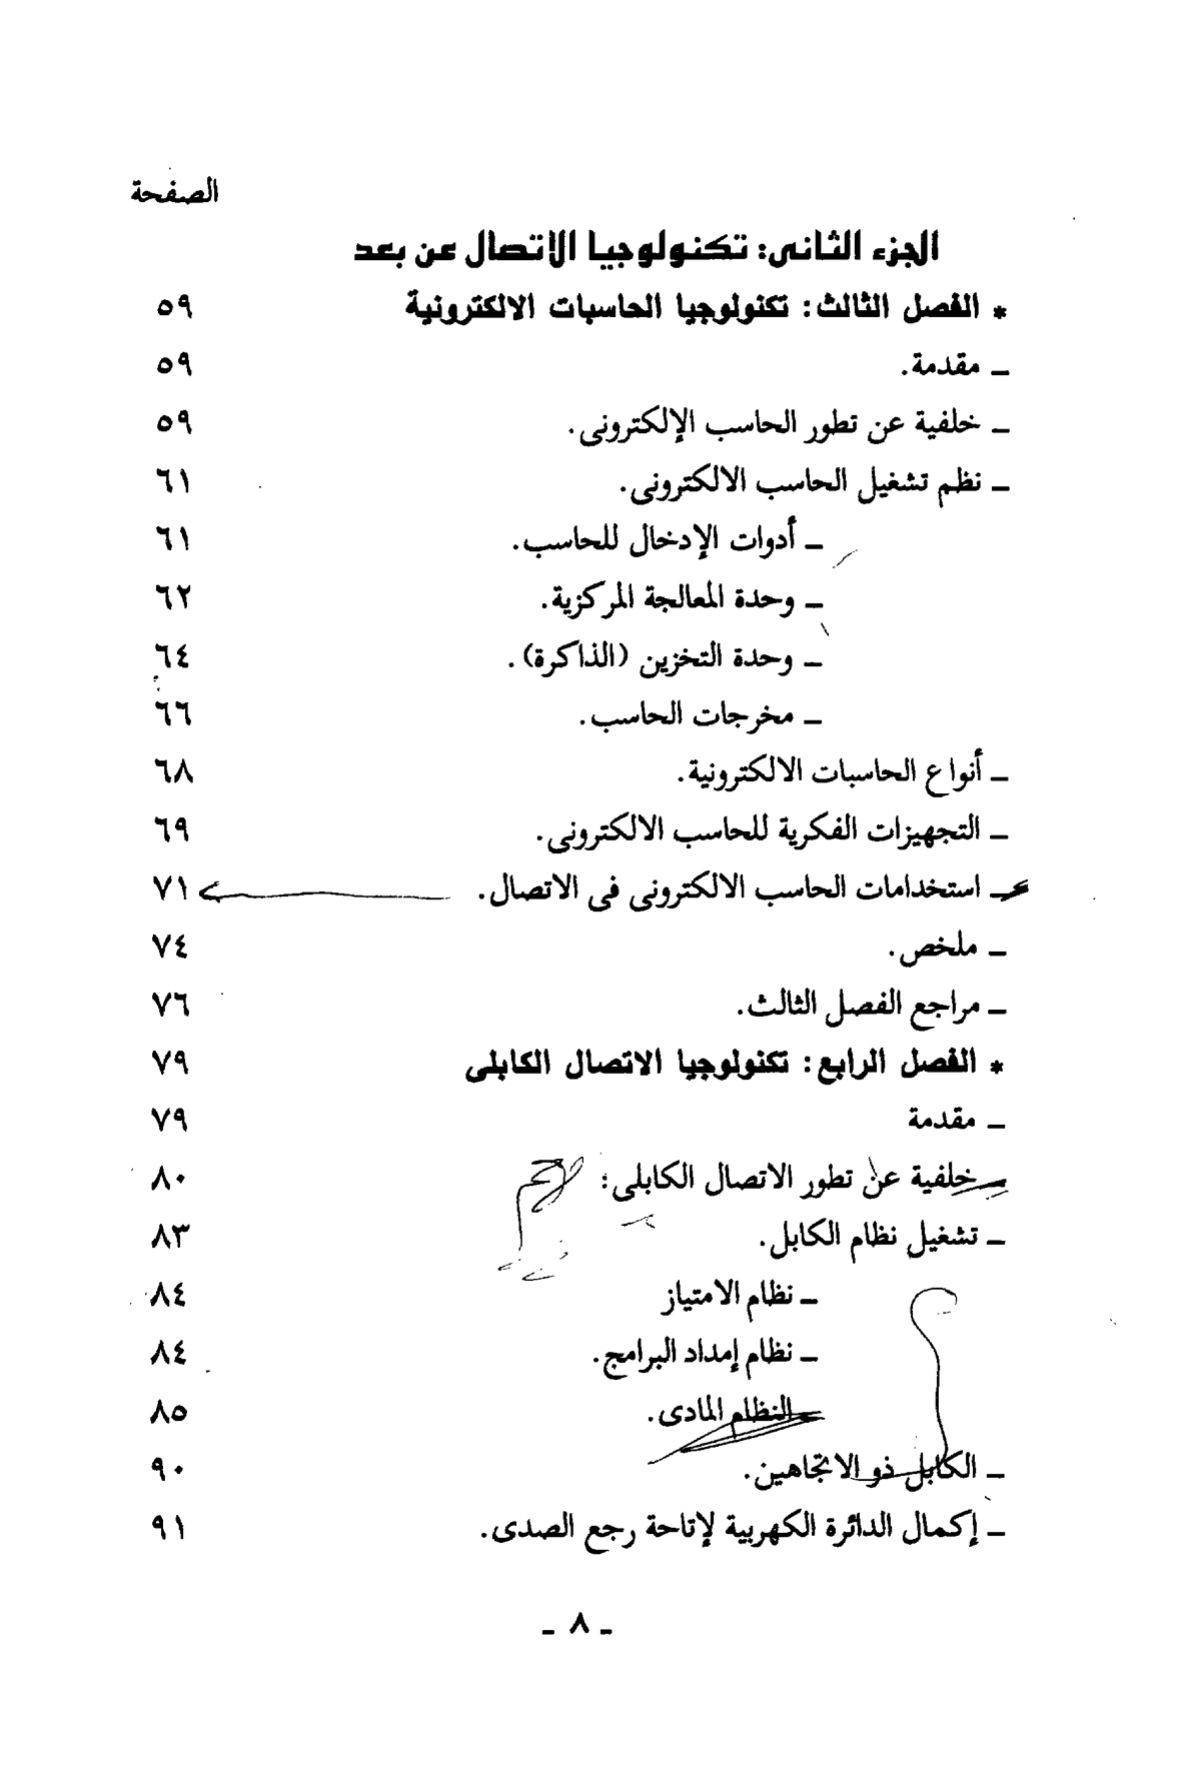 الصفحة
الجزء الثانى: تكنولوجيا الاتصال عن بعد
* الفصل الثالث: تكنولوجيا الحاسبات الالكترونية ٥٩
ـ مقدمة. ٥٩
ـ خلفية عن تطور الحاسب الإلكترونى. ٥٩
ـ نظم تشغيل الحاسب الالكترونى. ٦١
ـ أدوات الإدخال للحاسب. ٦١
ـ وحدة المعالجة المركزية. ٦٢
ـ وحدة التخزين (الذاكرة). ٦٤
ـ مخرجات الحاسب. ٦٦
ـ أنواع الحاسبات الالكترونية. ٦٨
ـ التجهيزات الفكرية للحاسب الالكترونى. ٦٩
ـ استخدامات الحاسب الالكترونى فى الاتصال. ٧١
ـ ملخص. ٧٤
ـ مراجع الفصل الثالث. ٧٦
* الفصل الرابع: تكنولوجيا الاتصال الكابلى ٧٩
ـ مقدمة ٧٩
ـ خلفية عن تطور الاتصال الكابلى: ٨٠
ـ تشغيل نظام الكابل. ٨٣
ـ نظام الامتياز ٨٤
ـ نظام إمداد البرامج. ٨٤
ـ النظام المادى. ٨٥
ـ الكابل ذو الاتجاهين. ٩٠
ـ إكمال الدائرة الكهربية لإتاحة رجع الصدى. ٩١
ـ ٨ ـ